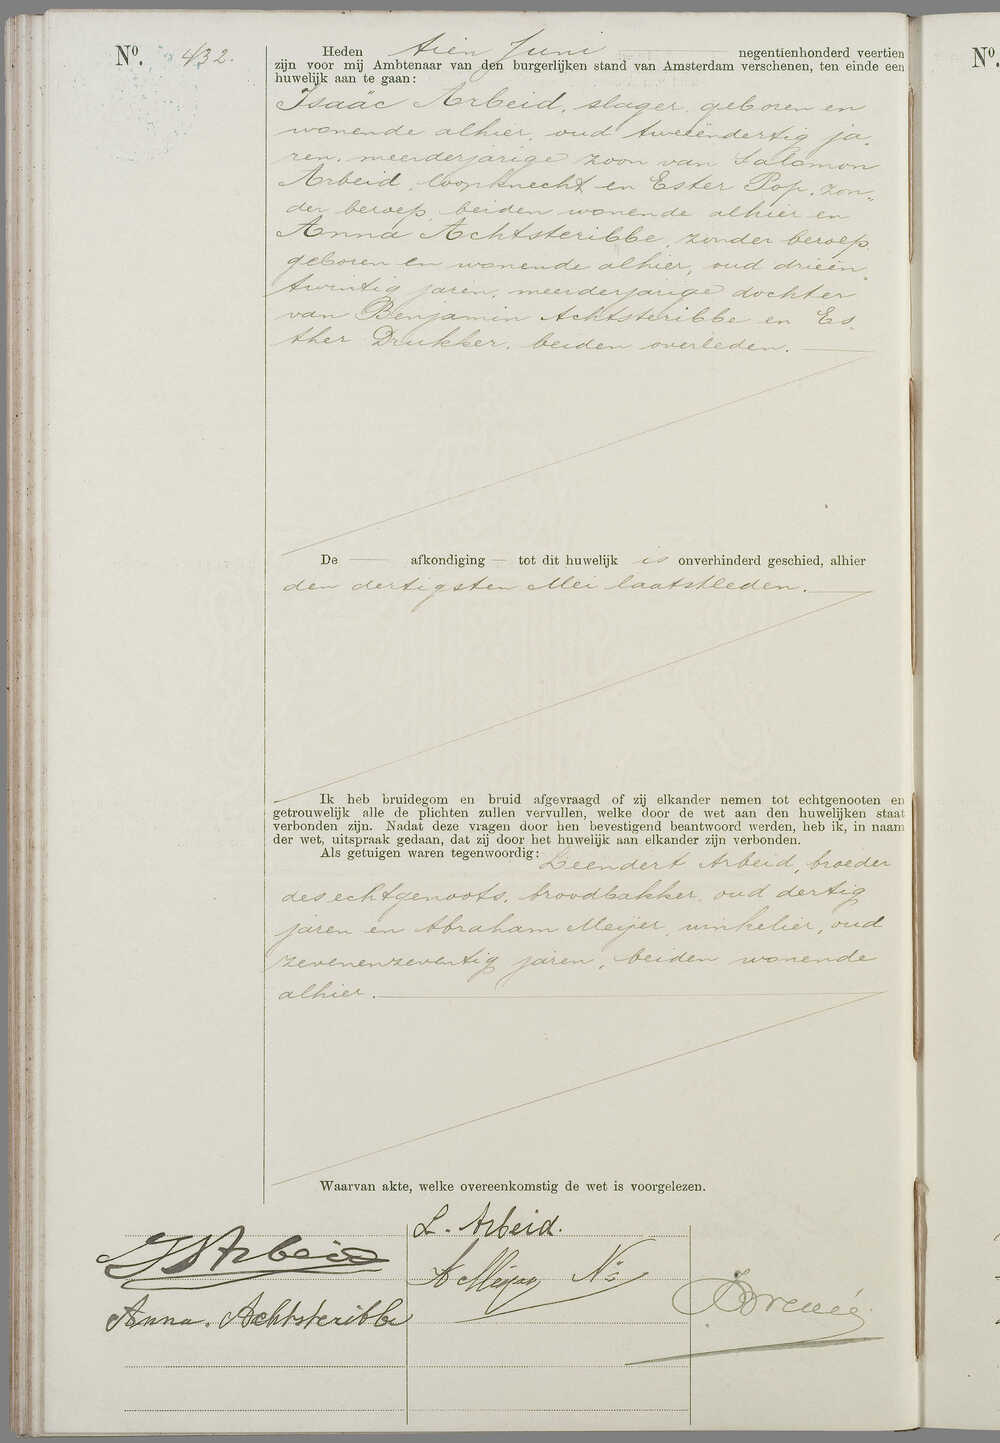 Nº. 432.
Heden tien Juni negentienhonderd veertien
zijn voor mij Ambtenaar van den burgerlijken stand van Amsterdam verschenen, ten einde een
huwelijk aan te gaan:
Isaäc Arbeid, slager, geboren en
wonende alhier, oud tweeëndertig ja-
ren, meerderjarige zoon van Salomon
Arbeid, loopknecht en Ester Pop, zon-
der beroep, beiden wonende alhier en
Anna Achtsteribbe, zonder beroep,
geboren en wonende alhier, oud drieën-
twintig jaren, meerderjarige dochter
van Benjamin Achtsteribbe en Es-
ther Drukker, beiden overleden.
De afkondiging tot dit huwelijk is onverhinderd geschied, alhier
den dertigsten Mei laatstleden.
Ik heb bruidegom en bruid afgevraagd of zij elkander nemen tot echtgenooten en
getrouwelijk alle de plichten zullen vervullen, welke door de wet aan den huwelijken staat
verbonden zijn. Nadat deze vragen door hen bevestigend beantwoord werden, heb ik, in naam
der wet, uitspraak gedaan, dat zij door het huwelijk aan elkander zijn verbonden.
Als getuigen waren tegenwoordig: Leendert Arbeid, broeder
des echtgenoots, broodbakker, oud dertig
jaren en Abraham Meijer, winkelier, oud
zevenenzeventig jaren, beiden wonende
alhier.
Waarvan akte, welke overeenkomstig de wet is voorgelezen.
L. Arbeid.
Arbeid
A Meijer
Anna. Achtsteribbe
Nº.